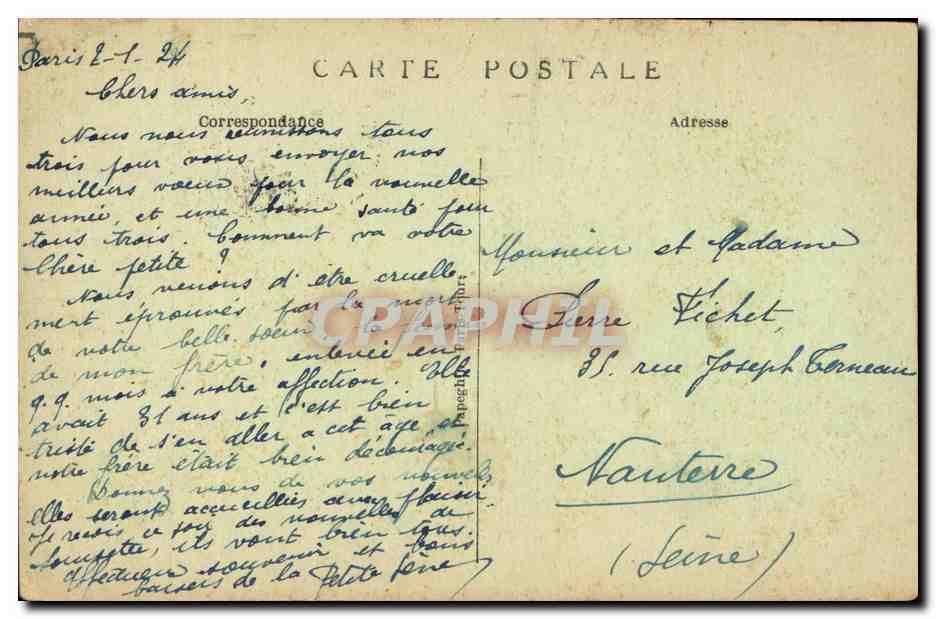 Paris 2-1-24
CARTE POSTALE
Chers amis,
Correspondance
Adresse
Nous nous réunissons tous
trois pour vous envoyer nos
meilleurs voeux pour la nouvelle
année, et une bonne santé pour
tous trois. Comment va votre
Chère petite ?
Nous venons d'être cruelle
ment éprouvés par la mort
de notre belle-soeur la
de mon frère, enlevée en
q.q. mois à notre affection. Elle
avait 31 ans et c'est bien
triste de s'en aller a cet âge, et
notre frère était bien découragé.
Donnez nous de vos nouvelles
elles seront accueillies avec plaisir
Je reçois ce soir des nouvelles de
ils vont bien tous.
Affectueux souvenir et bons
baisers de la Petite Irène
Monsieur et Madame
Pierre Fichet,
35, rue Joseph Terneau
Nanterre
(Seine)
CPARAMA